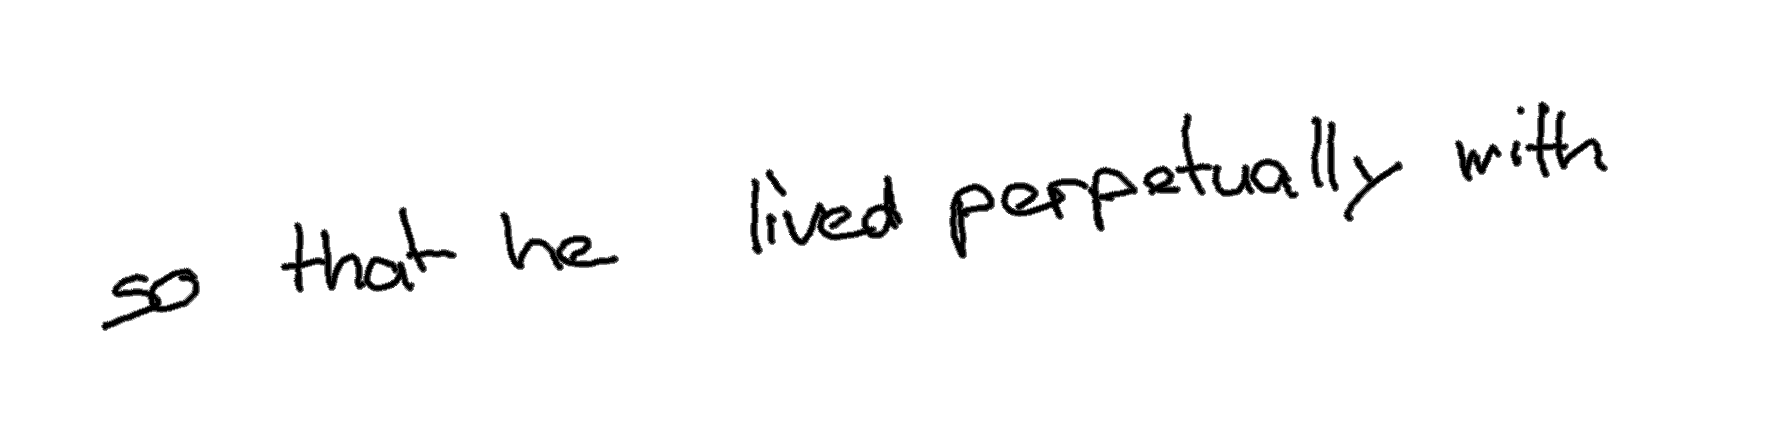 so that he lived perpetually with